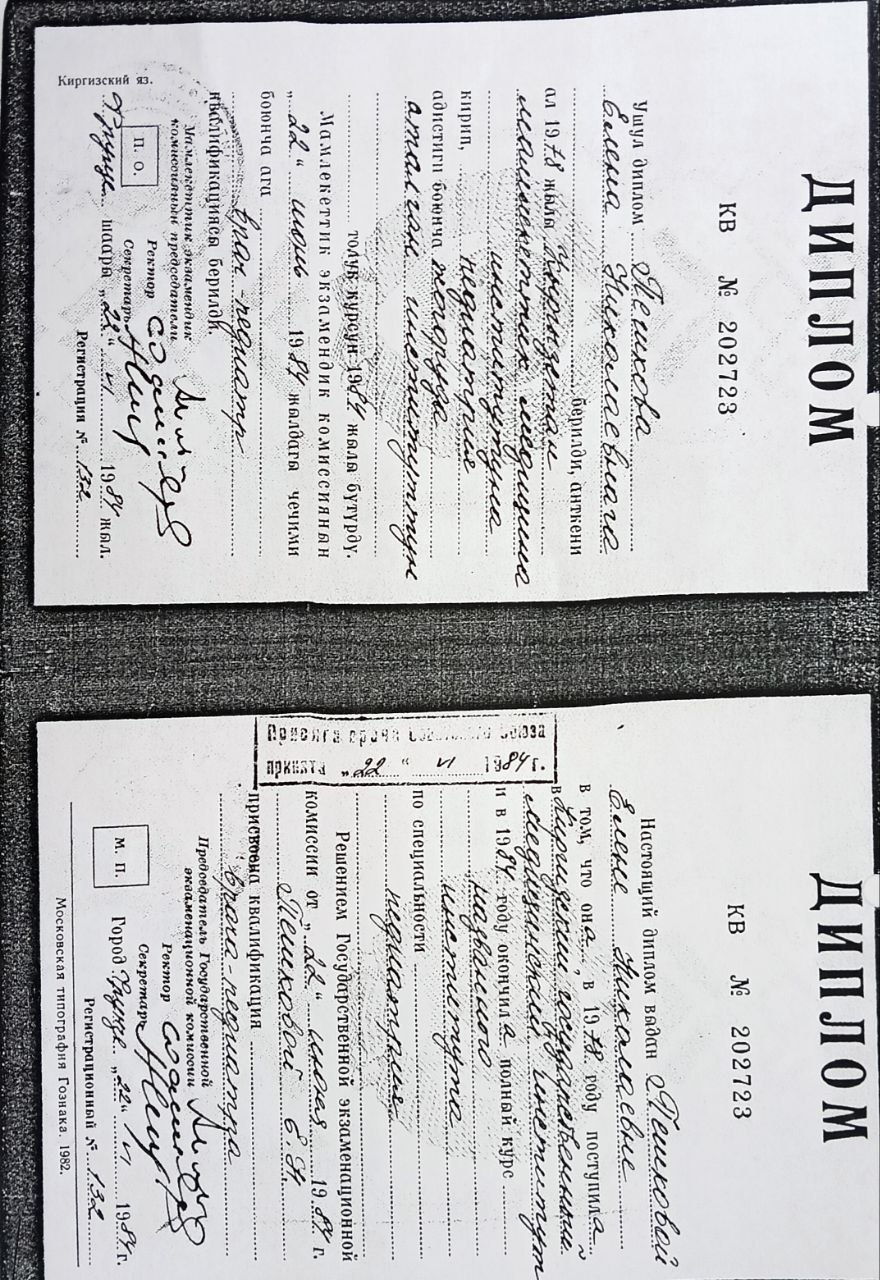 ДИПЛОМ
КВ № 202723
Ушул диплом Пешкова
Елена Николаевнага
берилди, анткени
ал 1978 жылы Кыргызстан
мамлекеттик медицина
институтуна
кирип, педиатрия
адистиги боюнча жогоруда
аталган институттун
толук курсун 1984 жылы бүтүрдү.
Мамлекеттик экзамендик комиссиянын
„22“ июнь 1984 жылдагы чечими
боюнча ага
врач-педиатр
квалификациясы берилди.
Мамлекеттик экзамендик
комиссиянын председатели
Ректор
П. О.
Секретарь
Фрунзе шаары „22“ VI 1984 жыл.
Регистрация № 132
Киргизский яз.
ДИПЛОМ
КВ № 202723
Настоящий диплом выдан Пешковой
Елене Николаевне
в том, что она в 1978 году поступила
в Киргизский государственный
медицинский институт
и в 1984 году окончила полный курс
названного
института
по специальности
педиатрия
Решением Государственной экзаменационной
комиссии от „22“ июня 1984 г.
Пешковой Е.Н.
присвоена квалификация
врача-педиатра
Председатель Государственной
экзаменационной комиссии
Ректор
М. П.
Секретарь
Город Фрунзе „22“ VI 1984 г.
Регистрационный № 132
Московская типография Гознака. 1982.
Присяга врача Советского Союза
принята „22“ VI 1984 г.